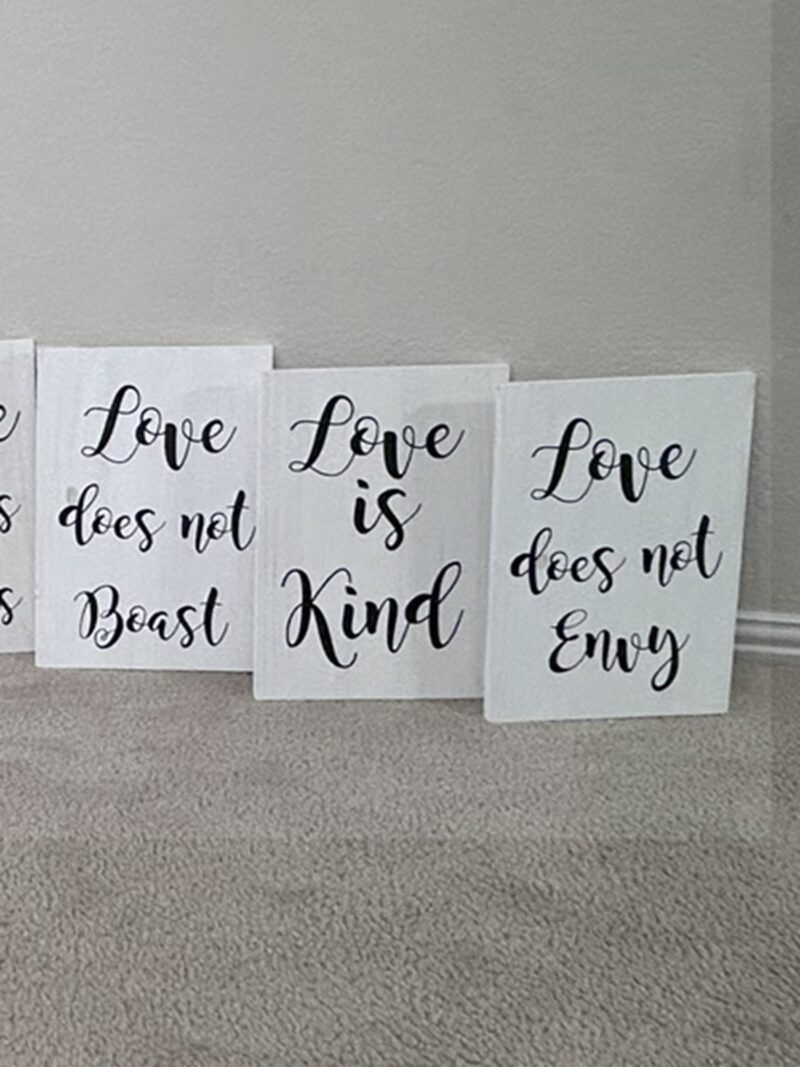 Love
does not
Boast
Love
is
Kind
Love
does not
Envy